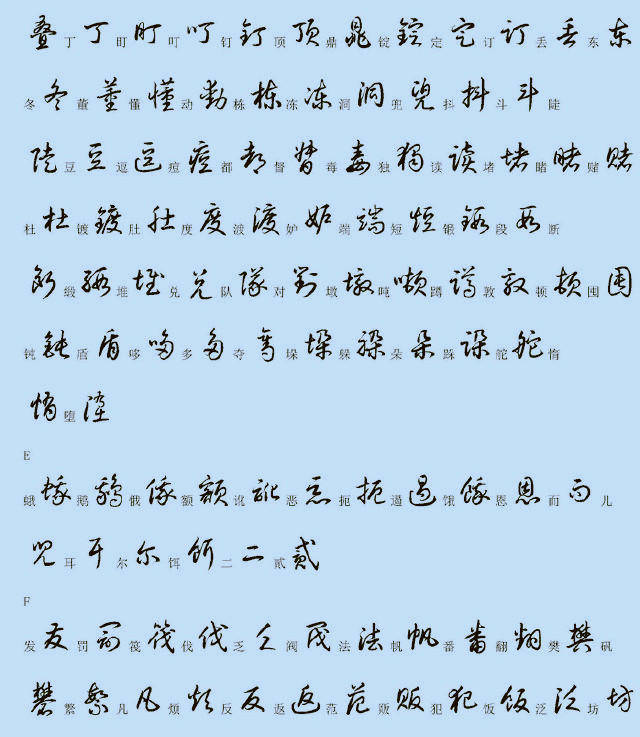 叠 丁 丁 盯 盯 叮 叮 钉 釘 顶 頂 鼎 鼎 锭 錠 定 定 订 訂 丢 丢 东 东
冬 冬 董 董 懂 懂 动 动 栋 栋 冻 冻 洞 洞 兜 兜 抖 抖 斗 斗 陡
陡 豆 豆 逗 逗 痘 痘 都 都 督 督 毒 毒 独 獨 读 读 堵 堵 睹 睹 赌 赌
杜 杜 镀 鍍 肚 肚 度 度 渡 渡 妒 妒 端 端 短 短 锻 鍛 段 段 断
断 缎 缎 堆 堆 兑 兑 队 隊 对 對 墩 墩 吨 噸 蹲 蹲 敦 敦 顿 顿 囤 囤
钝 鈍 盾 盾 哆 哆 多 多 夺 夺 垛 垛 躲 躲 朵 朵 跺 跺 舵 舵 惰
惰 堕 堕
E
蛾 蛾 鹅 鹅 俄 俄 额 额 讹 訛 恶 恶 扼 扼 遏 遏 饿 饿 恩 恩 而 而 儿
兒 耳 耳 尔 尔 饵 饵 二 二 贰 貳
F
发 发 罚 罚 筏 筏 伐 伐 乏 乏 阀 阀 法 法 帆 帆 番 番 翻 翻 樊 樊 矾
礬 繁 繁 凡 凡 烦 烦 反 反 返 返 范 范 贩 販 犯 犯 饭 饭 泛 泛 坊 坊